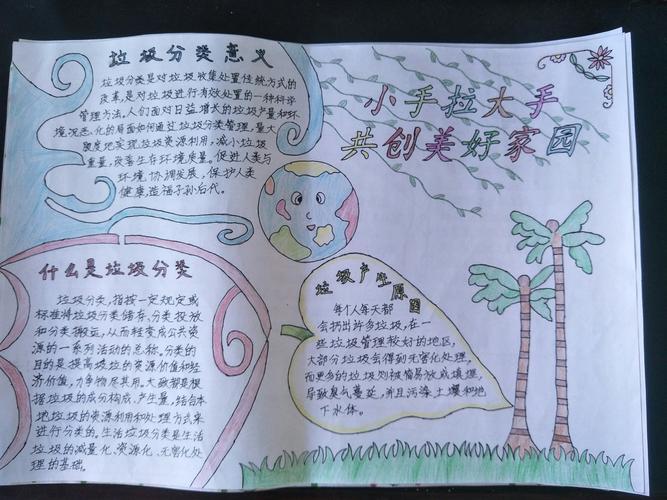 垃圾分类意义
垃圾分类是对垃圾收集处置传统方式的
改革,是对垃圾进行有效处置的一种科学
管理方法,人们面对日益增长的垃圾产量和环
境况恶化的局面如何通过垃圾分类管理,最大
限度地实现垃圾资源利用,减小垃圾
重量,改善生存环境质量。促进人类与
环境协调发展,保护人类
健康造福子孙后代。
小手拉大手
共创美好家园
什么是垃圾分类
垃圾分类,指按一定规定或
标准将垃圾分类储存、分类投放
和分类搬运,从而转变成公共资
源的一系列活动的总称。分类的
目的是提高垃圾的资源价值和经
济价值,力争物尽其用。大致都是根
据垃圾的成分构成、产生量,结合本
地垃圾的资源利用和处理方式来
进行分类的。生活垃圾分类是生活
垃圾的减量化、资源化、无害化处
理的基础。
垃圾产生原因
每个人每天都
会扔出许多垃圾,在一
些垃圾管理较好的地区,
大部分垃圾会得到无害化处理,
而更多的垃圾则被简易放或填埋,
导致臭气蔓延,并且污染土壤和地
下水体。